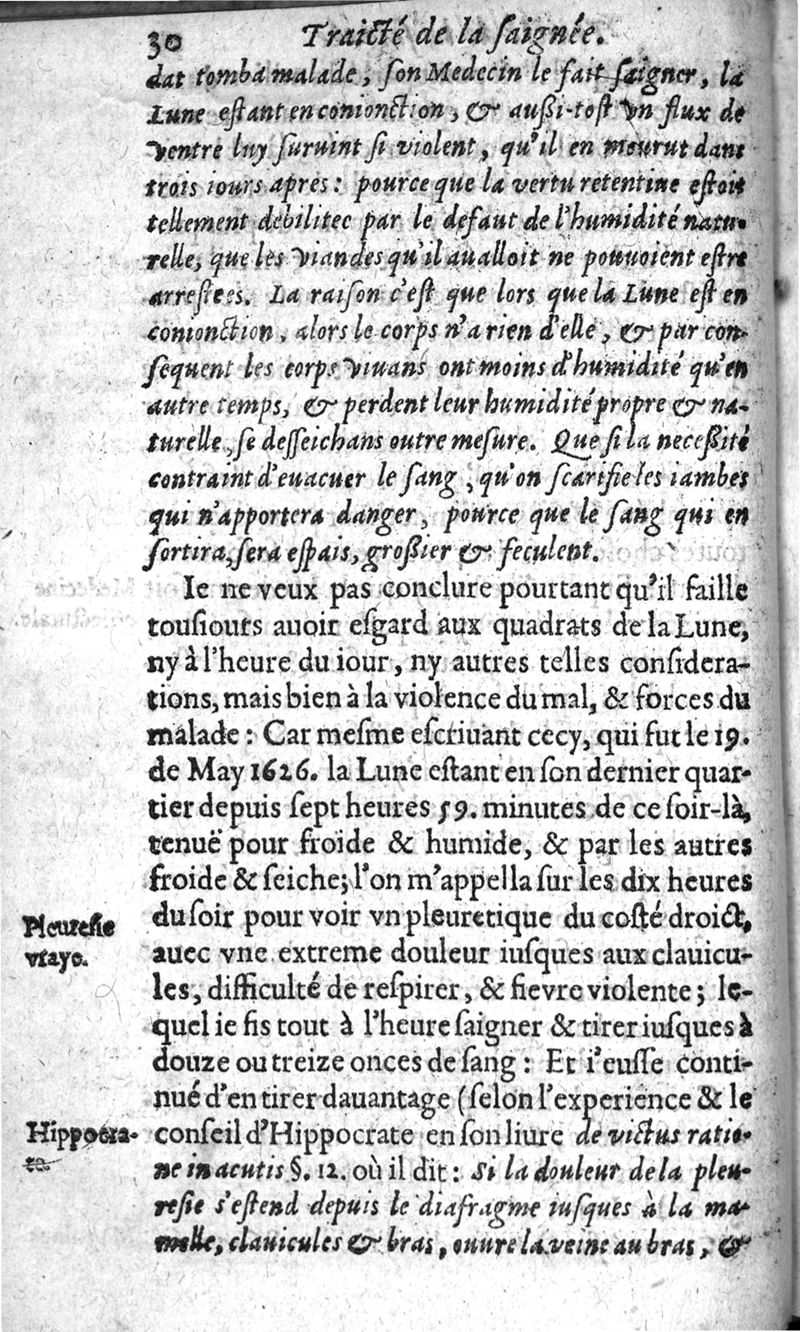 30 Traicté de la ſaignée.
dat tomba malade, ſon Medecin le fait ſaigner, la
Lune eſtant en conionction, & außi-toſt vn flux de
ventre luy ſuruint ſi violent, qu'il en mourut dans
trois iours apres : pource que la vertu retentiue eſtoit
tellement debilitee par le defaut de l'humidité natu-
relle, que les viandes qu'il aualloit ne pouuoient eſtre
arreſtees. La raiſon c'eſt que lors que la Lune eſt en
conionction, alors le corps n'a rien d'elle, & par con-
ſequent les corps viuans ont moins d'humidité qu'en
autre temps, & perdent leur humidité propre & na-
turelle, ſe deſſeichans outre meſure. Que ſi la neceßité
contraint d'euacuer le ſang, qu'on ſcarifie les iambes
qui n'apportera danger, pource que le ſang qui en
ſortira, ſera eſpais, großier & feculent.
Ie ne veux pas conclure pourtant qu'il faille
touſiours auoir eſgard aux quadrats de la Lune,
ny à l'heure du iour, ny autres telles conſidera-
tions, mais bien à la violence du mal, & forces du
malade : Car meſme eſcriuant cecy, qui fut le 19.
de May 1626. la Lune eſtant en ſon dernier quar-
tier depuis ſept heures 59. minutes de ce ſoir-là,
tenuë pour froide & humide, & par les autres
froide & ſeiche; l'on m'appella ſur les dix heures
Pleureſie
vraye.
du ſoir pour voir vn pleuretique du coſté droict,
auec vne extreme douleur iuſques aux clauicu-
les, difficulté de reſpirer, & fievre violente ; le-
quel ie fis tout à l'heure ſaigner & tirer iuſques à
douze ou treize onces de ſang : Et i'euſſe conti-
nué d'en tirer dauantage (ſelon l'experience & le
Hippocra-
te.
conſeil d'Hippocrate en ſon liure de victus ratio-
ne in acutis §. 12. où il dit : Si la douleur de la pleu-
reſie s'eſtend depuis le diafragme iuſques à la ma-
melle, clauicules & bras, ouure la veine au bras, &